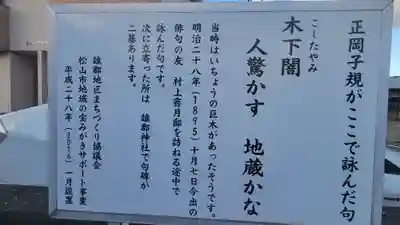 正岡子規がここで詠んだ句
こしたやみ
木下闇
人驚かす 地蔵かな
当時はいちょうの巨木があったそうです。
明治二十八年(1895)十月七日今出の
俳句の友 村上霽月邸を訪ねる途中で
詠んだ句です。
次に立寄った所は 雄郡神社で句碑が
二基あります。
雄郡地区まちづくり協議会
松山市地域の宝みがきサポート事業
平成二十八年(2016)一月設置